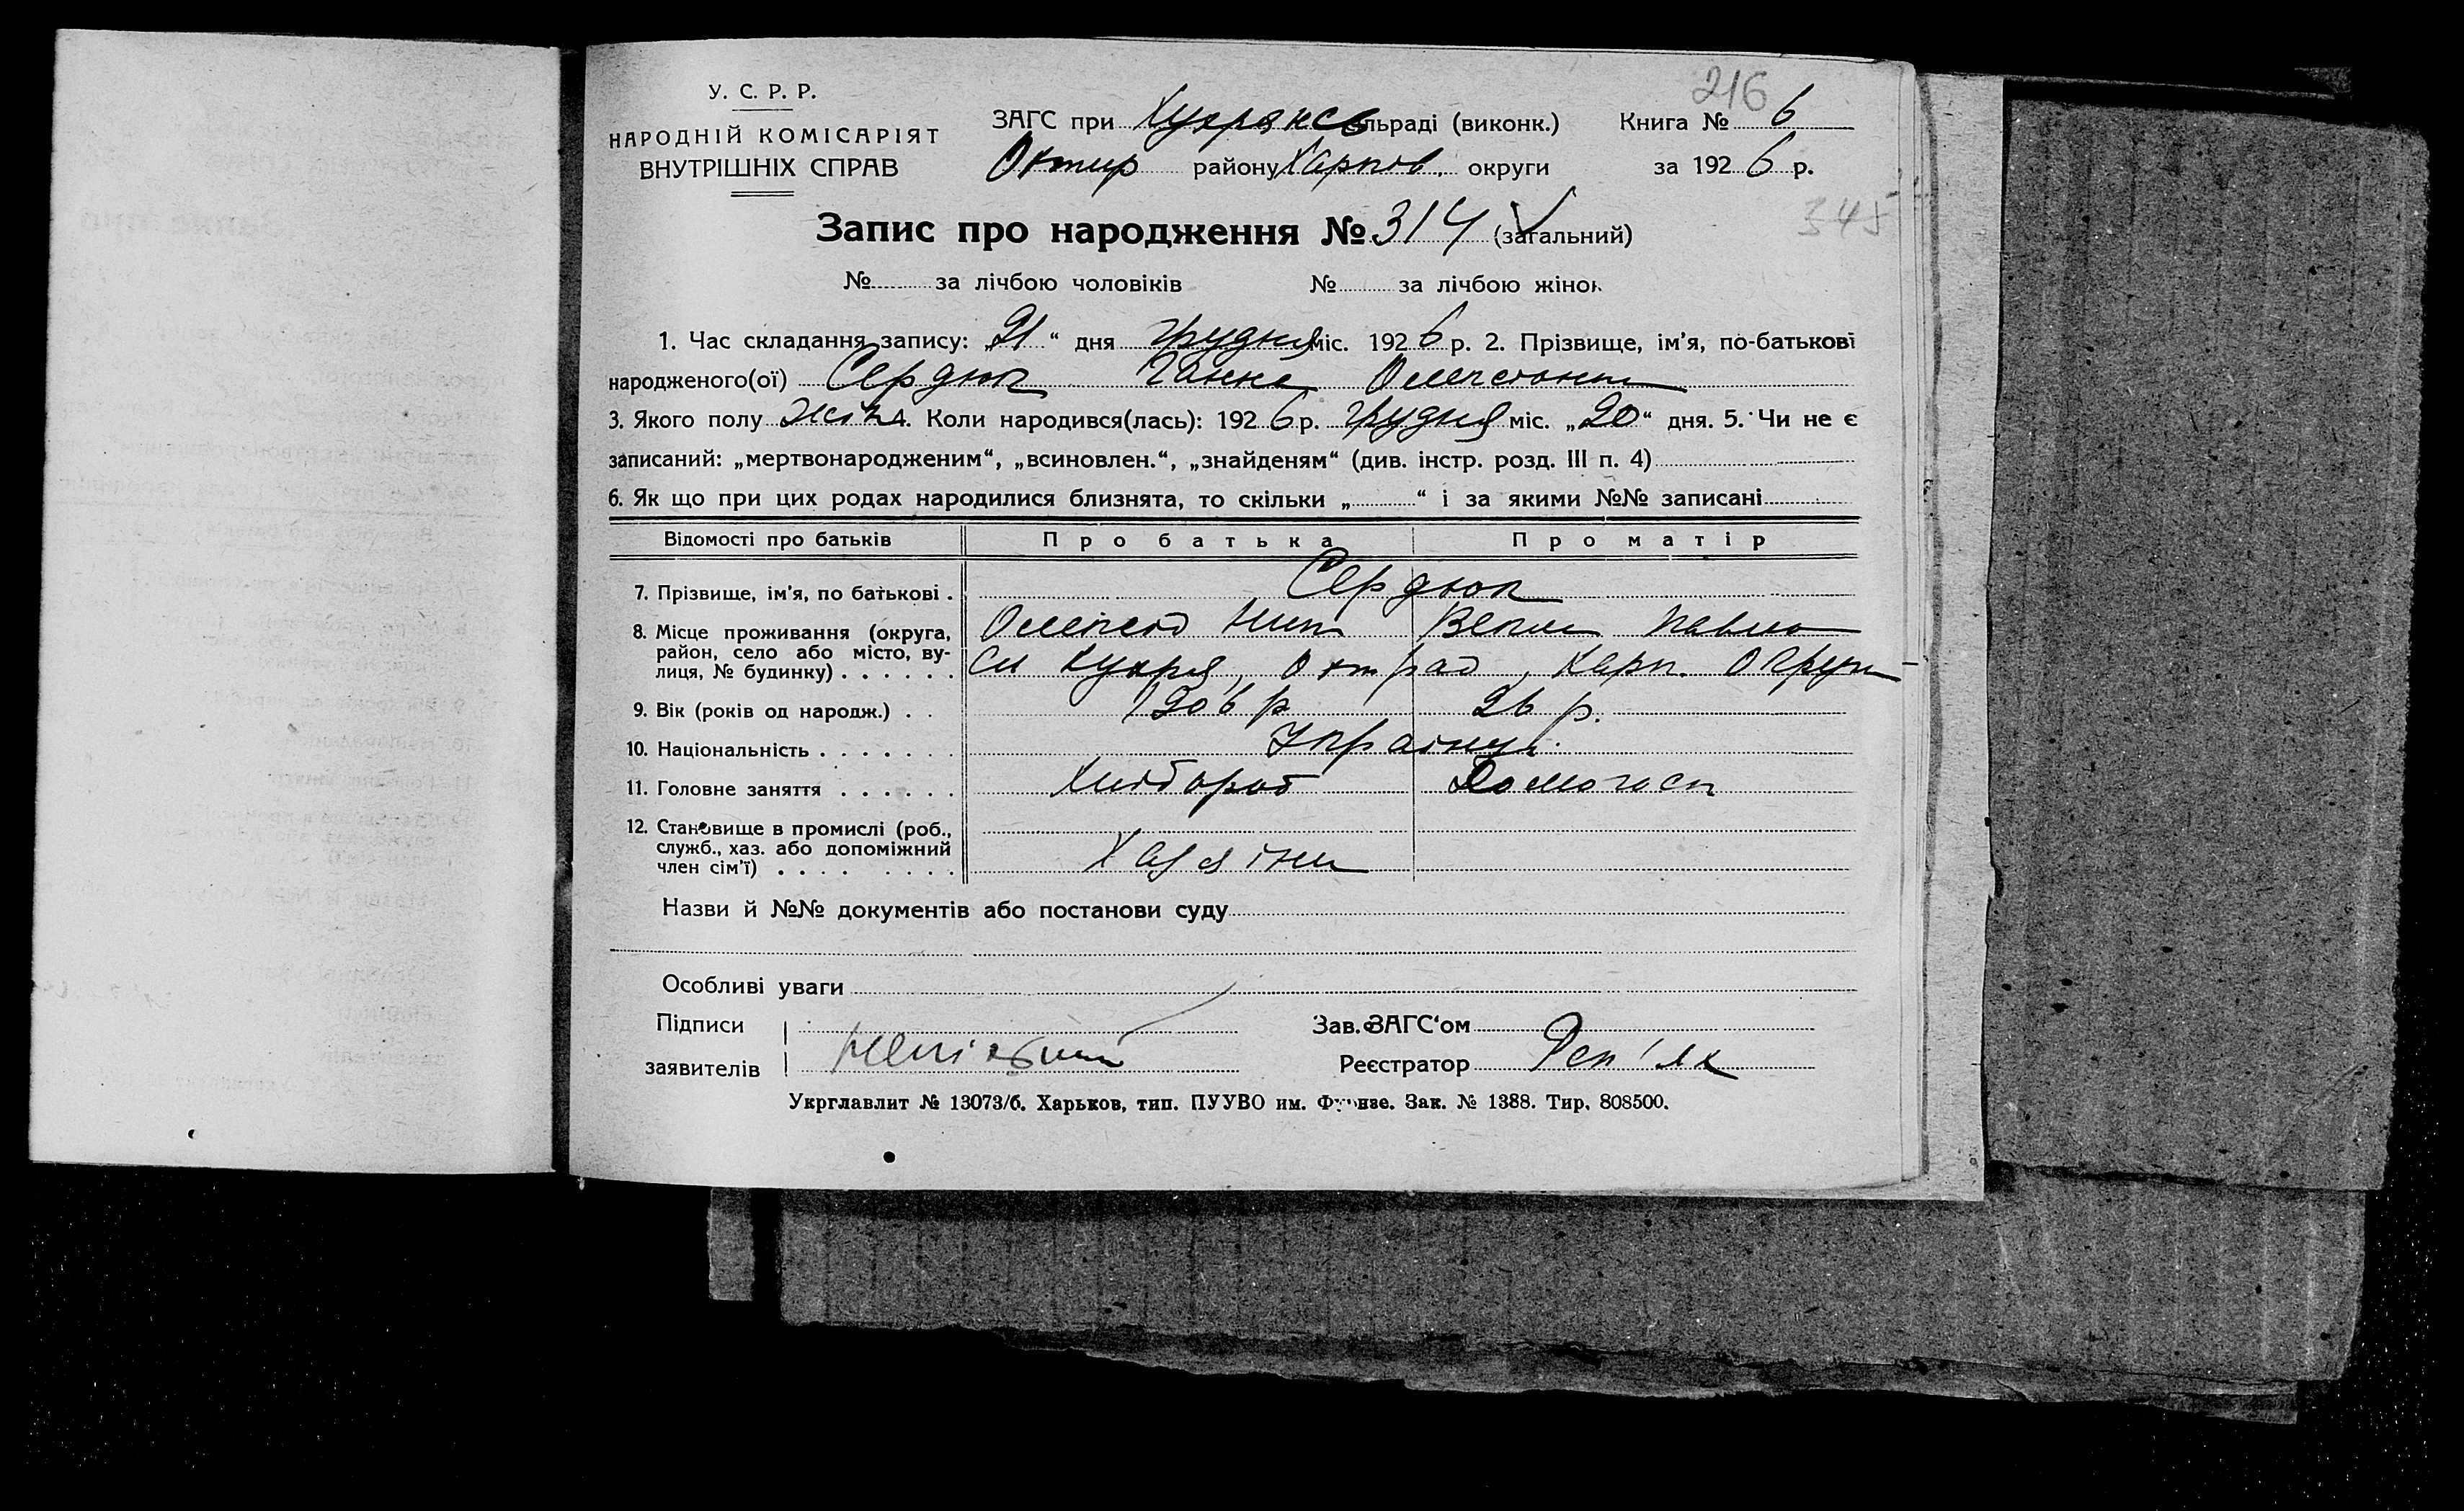 216
У. С. Р. Р.
НАРОДНІЙ КОМІСАРІЯТ
ВНУТРІШНІХ СПРАВ
ЗАГС при Хухрянсь сільраді (виконк.) Книга № 6
Охтир району Харків. округи за 1926 р.
345
Запис про народження № 314 (загальний)
№ за лічбою чоловіків № за лічбою жінок
1. Час складання запису: „21“ дня грудня міс. 1926 р. 2. Прізвище, ім'я, по-батькові
народженого(ої) Сердюк Ганна
3. Якого полу жін 4. Коли народився(лась): 1926 р. грудня міс. „20“ дня. 5. Чи не є
записаний: „мертвонародженим“, „всиновлен.“, „знайденям“ (див. інстр. розд. III п. 4)
6. Як що при цих родах народилися близнята, то скільки „ “ і за якими №№ записані
Відомості про батьків Про батька Про матір
7. Прізвище, ім'я, по батькові . Сердюк
8. Місце проживання (округа, район, село або місто, вулиця, № будинку) . . . . . .
Павло
Хухря, Охт рай, Харк.
9. Вік (років од народж.) . . 26 р.
10. Національність . . . . . . .
11. Головне заняття . . . . . . Хлібороб Домогосп
12. Становище в промислі (роб., служб., хаз. або допоміжний член сім'ї) . . . . . . . .
Назви й №№ документів або постанови суду
Особливі уваги
Підписи
заявителів
Зав. ЗАГС'ом
Реєстратор Реп'ях
Укрглавлит № 13073/б. Харьков, тип. ПУУВО им. Фрунзе. Зак. № 1388. Тир. 808500.